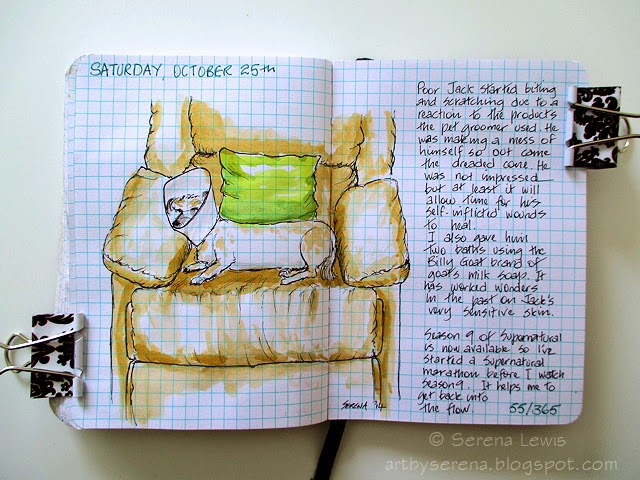 SATURDAY, OCTOBER 25th
Poor Jack started biting
and scratching due to a
reaction to the products
the pet groomer used. He
was making a mess of
himself so out came
the dreaded cone. He
was not impressed
but at least it will
allow time for his
self-inflicted wounds
to heal.
I also gave him
two baths using the
Billy Goat brand of
goat's milk soap. It
has worked wonders
in the past on Jack's
very sensitive skin.
Season 9 of Supernatural
is now available so I've
started a Supernatural
marathon before I watch
Season 9. It helps me to
get back into
the flow.
55/365
SERENA '14
© Serena Lewis
artbyserena.blogspot.com